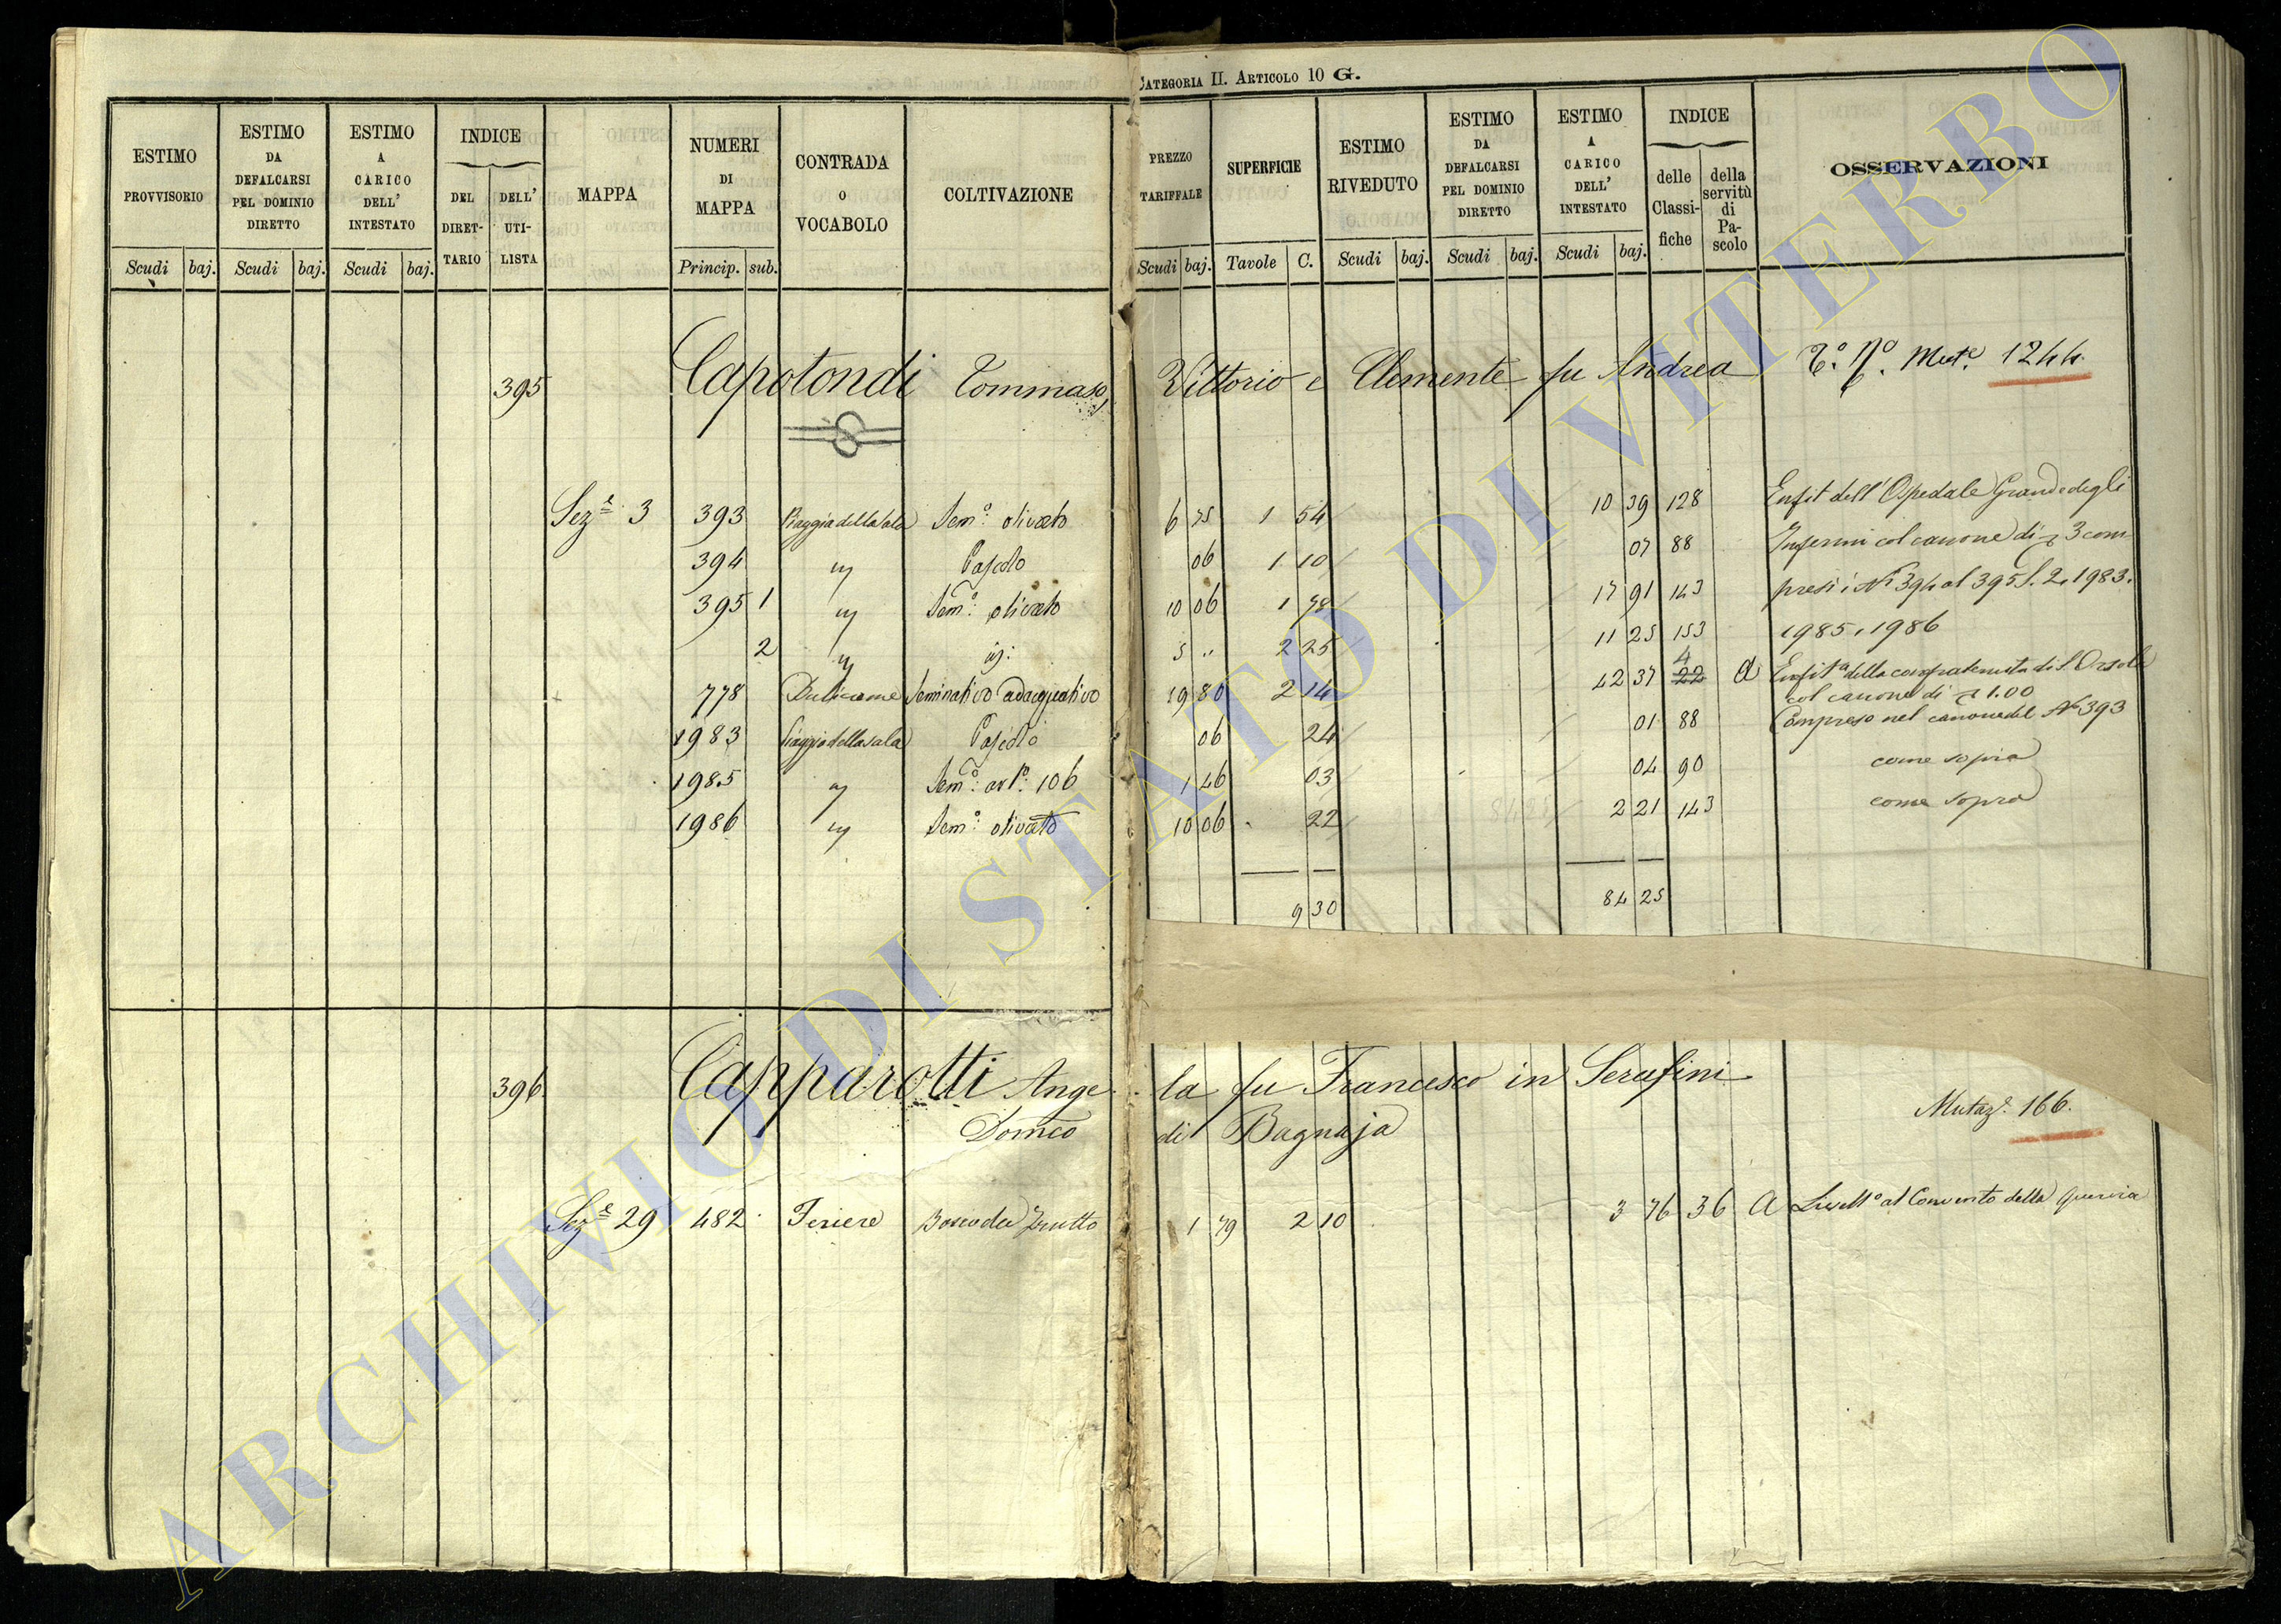 CATEGORIA II. ARTICOLO 10 G.
ESTIMO PROVVISORIO
ESTIMO DA DEFALCARSI PEL DOMINIO DIRETTO
ESTIMO A CARICO DELL' INTESTATO
INDICE
DEL DIRETTARIO
DELL' UTILISTA
MAPPA
NUMERI DI MAPPA
CONTRADA O VOCABOLO
COLTIVAZIONE
PREZZO TARIFFALE
SUPERFICIE
ESTIMO RIVEDUTO
ESTIMO DA DEFALCARSI PEL DOMINIO DIRETTO
ESTIMO A CARICO DELL' INTESTATO
INDICE
delle Classifiche
della servitù di Pascolo
OSSERVAZIONI
Scudi baj. Scudi baj. Scudi baj. Princip. sub. Scudi baj. Tavole C. Scudi baj. Scudi baj. Scudi baj.
395 Capotondi Tommaso, Vittorio e Clemente fu Andrea Mut.e 1244.
Sez.e 3 393 Piaggia della Sala Sem.o olivato 6 75 1 54 10 39 128 Enfit dell' Ospedale Grande degli
394 " Pascolo 06 1 10 07 88 Infermi col canone di 3 com
395 1 " Sem.o olivato 10 06 1 78 17 91 143 presi i Ni 394 al 395 S. 2, 1983,
2 " id: 5 " 2 25 11 25 153 1985, 1986
778 Bulicame Seminativo adacquativo 19 80 2 14 42 37 22 4 a Enfit.a della confraternita di S. Orsola
col canone di 1.00
1983 Piaggia della Sala Pascolo 06 24 01 88 Compreso nel canone del N 393
1985 " Sem.o 106 1 46 03 04 90 come sopra
1986 " Sem.o olivato 10 06 22 2 21 143 come sopra
9 30 84 25
396 Capparotti Ange la fu Francesco in Serafini
Domco di Bagnaja Mutaz.e 166.
Sez.e 29 482 Feriere Bosco da frutto 1 79 2 10 3 76 36 A Livell.o al Convento della Quercia
ARCHIVIO DI STATO DI VITERBO